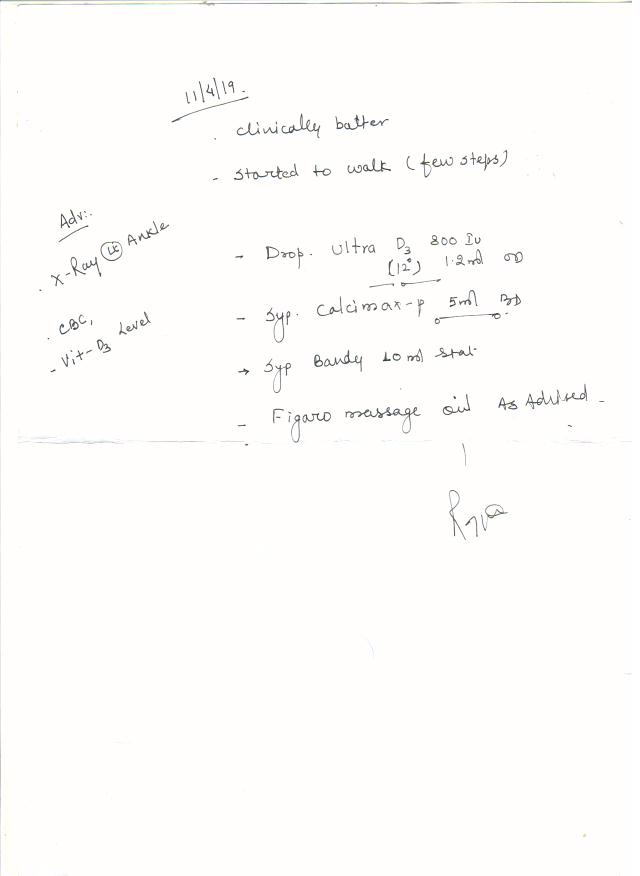 11/4/19.
. clinically batter
- started to walk (few steps)
Adv:-
. X-Ray Ankle
. CBC,
- Vit-D3 Level
- Drop. Ultra D3 800 IU
(12°) 1.2ml OD
- Syp. Calcimax-P 5ml BD
→ Syp Bandy 10 ml stat
- Figaro massage oil As Advised -